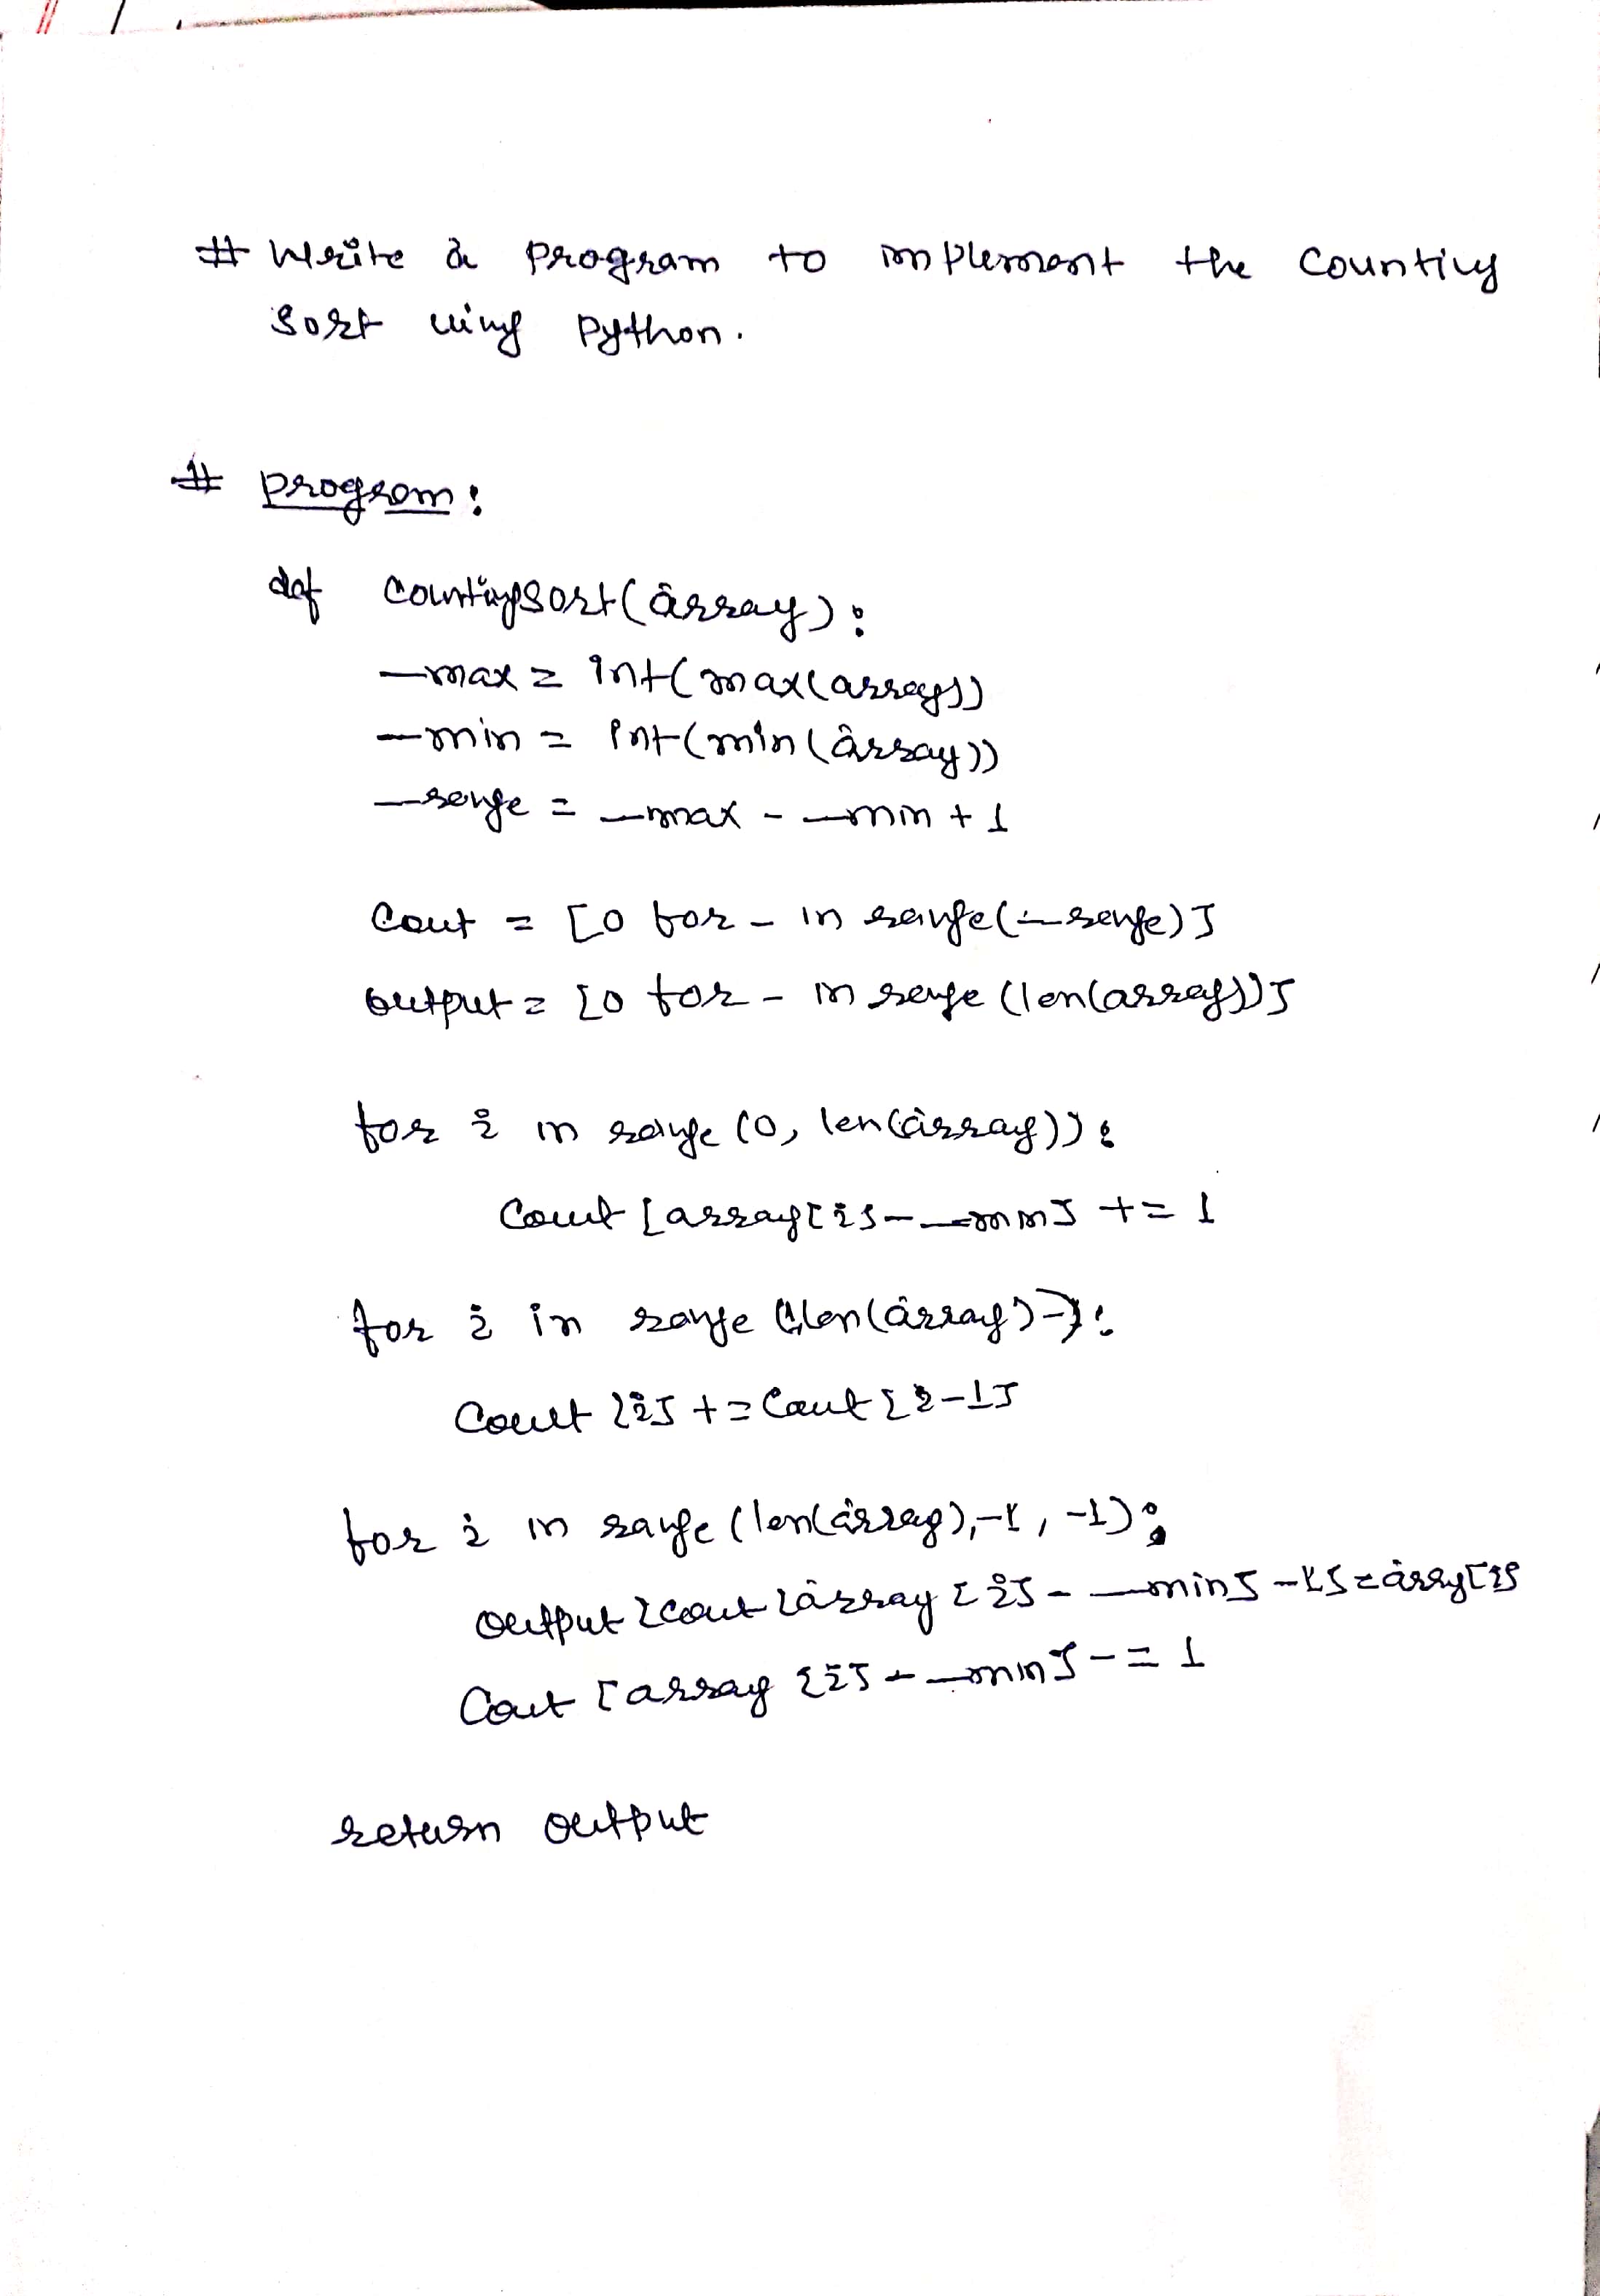 # Write a program to implement the counting
sort using Python.
# program:
def countingsort(array):
_max = int(max(array))
_min = int(min(array))
_range = _max - _min + 1
Count = [0 for _ in range(_range)]
output = [0 for _ in range (len(array))]
for i in range (0, len(array)):
Count [array[i]-_min] += 1
for i in range (len(array)-):
Count [i] += Count [i-1]
for i in range (len(array),-1, -1):
output [count [array [i] - _min] -1] = arry[i]
Count [array [i] - _min] -= 1
return output